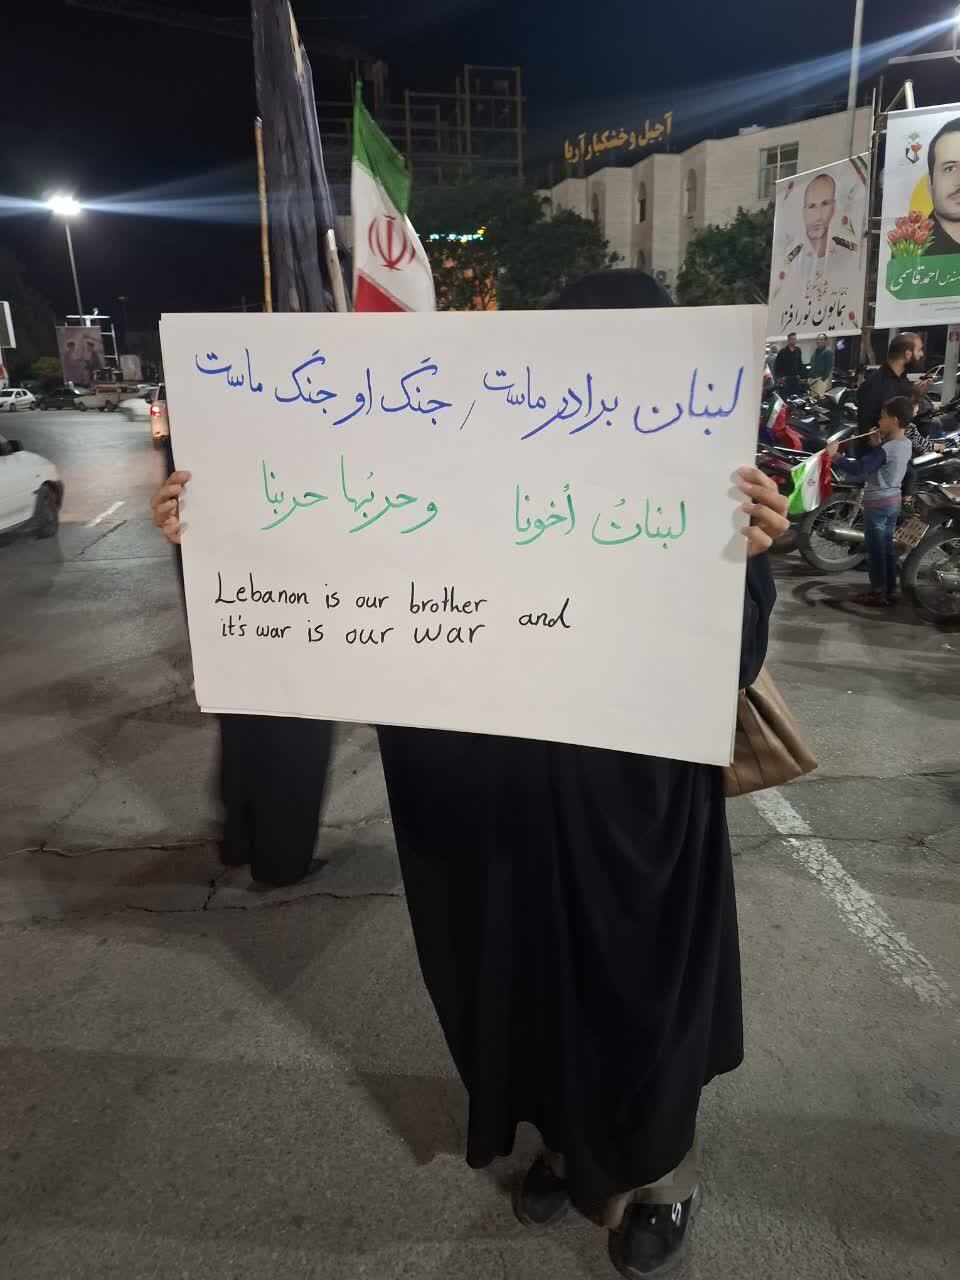 آجیل و خشکبار آریا
همایون نورافزا
مهندس احمد قاسمی
لبنان برادر ماست / جنگ او جنگ ماست
لبنانُ أخونا وحربُها حربنا
Lebanon is our brother and
it's war is our war